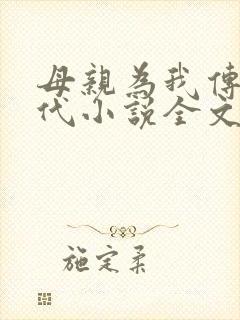 母親為我傳
代小說全文
施定柔